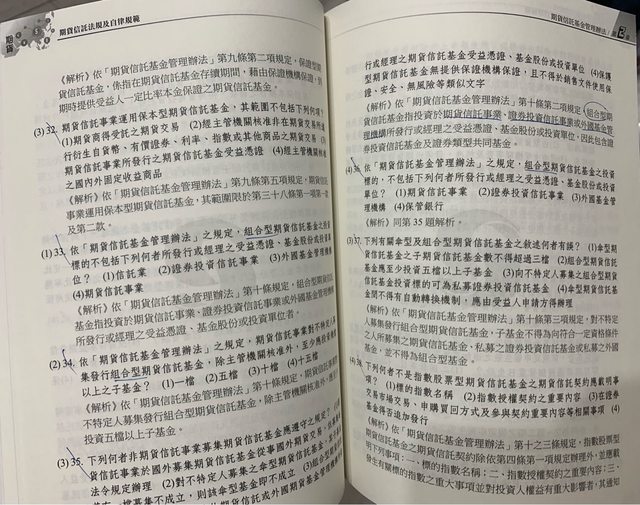 期貨
期貨信託法規及自律規範
《解析》依「期貨信託基金管理辦法」第九條第二項規定，保證型期
貨信託基金，係指在期貨信託基金存續期間，藉由保證機構保證，到
期時提供受益人一定比率本金保證之期貨信託基金。
(3) 32. 期貨信託事業運用保本型期貨信託基金，其範圍不包括下列何項？
(1)期貨商得受託之期貨交易 (2)經主管機關核准非在期貨交易所進
行衍生自貨幣、有價證券、利率、指數或其他商品之期貨交易 (3)
期貨信託事業所發行之期貨信託基金受益憑證 (4)經主管機關核准
之國內外固定收益商品
《解析》依「期貨信託基金管理辦法」第九條第五項規定，期貨信託
事業運用保本型期貨信託基金，其範圍限於第三十八條第一項第一款
及第二款。
(1) 33. 依「期貨信託基金管理辦法」之規定，組合型期貨信託基金之投資
標的不包括下列何者所發行或經理之受益憑證、基金股份或投資單
位？ (1)信託業 (2)證券投資信託事業 (3)外國基金管理機構
(4)期貨信託事業
《解析》依「期貨信託基金管理辦法」第十條規定，組合型期貨信託
基金指投資於期貨信託事業、證券投資信託事業或外國基金管理機構
所發行或經理之受益憑證、基金股份或投資單位者。
(2) 34. 依「期貨信託基金管理辦法」之規定，期貨信託事業對不特定人
集發行組合型期貨信託基金，除主管機關核准外，至少應投資幾檔
以上之子基金？ (1)一檔 (2)五檔 (3)十檔 (4)十五檔
《解析》依「期貨信託基金管理辦法」第十條規定，期貨信託事業對
不特定人募集發行組合型期貨信託基金，除主管機關核准外，應至少
投資五檔以上子基金。
(3) 35. 下列何者非期貨信託事業募集期貨信託基金應遵守之規定？
貨信託事業於國外募集期貨信託基金從事國外期貨交易，
法令規定辦理 (2)對不特定人募集之傘型期貨信託基金，
一檔募集不成立，則該傘型基金即不成立 (3)組合型期貨信託
期貨信託基金管理辦法
行或經理之期貨信託基金受益憑證、基金股份或投資單位 (4)保護
型期貨信託基金無提供保證機構保證，且不得於銷售文件使用保
證、安全、無風險等類似文字
《解析》依「期貨信託基金管理辦法」第十條第二項規定，組合型期
貨信託基金指投資於期貨信託事業、證券投資信託事業或外國基金管
理機構所發行或經理之受益憑證、基金股份或投資單位，因此包含證
券投資信託基金及證券類型共同基金。
(4) 36. 依「期貨信託基金管理辦法」之規定，組合型期貨信託基金之投資
標的，不包括下列何者所發行或經理受益憑證、基金股份或投資單
位？ (1)期貨信託事業 (2)證券投資信託事業 (3)外國基金管
理機構 (4)保管銀行
《解析》同第 35 題解析。
(3) 37. 下列有關傘型及組合型期貨信託基金之敘述何者有誤？ (1)傘型期
貨信託基金之子期貨信託基金數不得超過三檔 (2)組合型期貨信託
基金應至少投資五檔以上子基金 (3)向不特定人募集之組合型期貨
信託基金投資標的可為私募證券投資信託基金 (4)傘型期貨信託基
金間不得有自動轉換機制，應由受益人申請方得辦理
《解析》依「期貨信託基金管理辦法」第十條第三項規定，對不特定
人募集發行組合型期貨信託基金，子基金不得為向符合一定資格條件
之人所募集之期貨信託基金、私募之證券投資信託基金或私募之外國
基金，並不得為組合型基金。
(4) 38. 下列何者不是指數股票型期貨信託基金之期貨信託契約應載明事
項？ (1)標的指數名稱 (2)指數授權契約之重要內容 (3)在證券
交易市場交易、申購買回方式及參與契約重要內容等相關事項 (4)
基金得否追加發行
《解析》依「期貨信託基金管理辦法」第十之三條規定，指數股票型
期貨信託基金之期貨信託契約除依第四條第一項規定辦理外，並應載
明下列事項：一、標的指數名稱；二、指數授權契約之重要內容；三、
發生有關標的指數之重大事項並對投資人權益有重大影響者，其通知